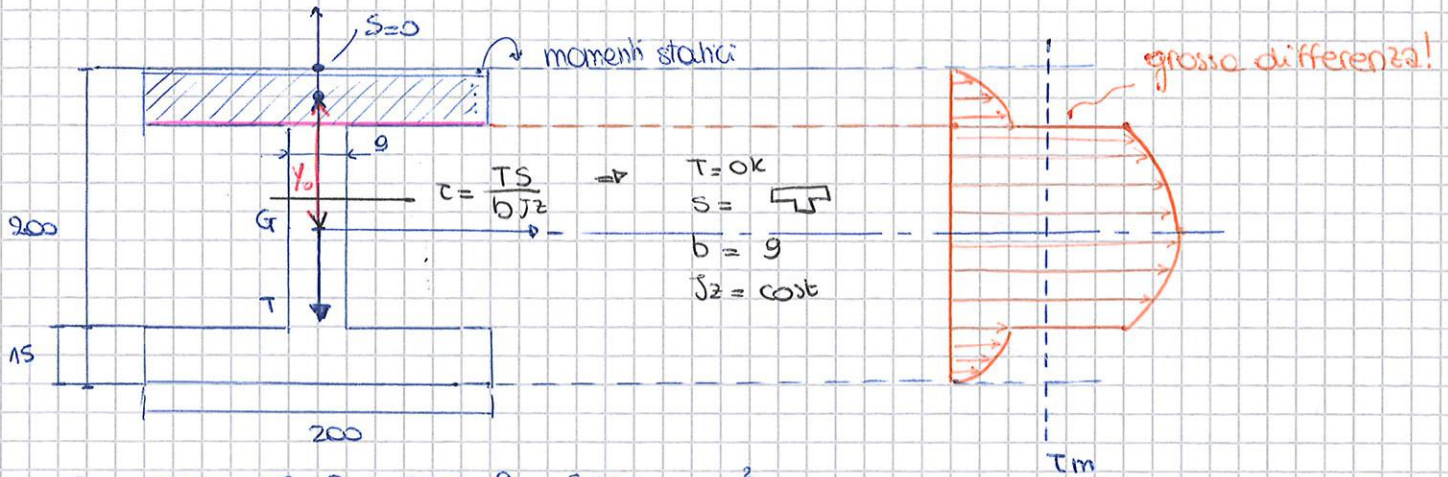 S=0
momenti statici
grossa differenza!
9
Y₀
τ = TS / bJz ⇒ T = OK
S =
b = 9
Jz = cost
G
200
T
15
200
τm